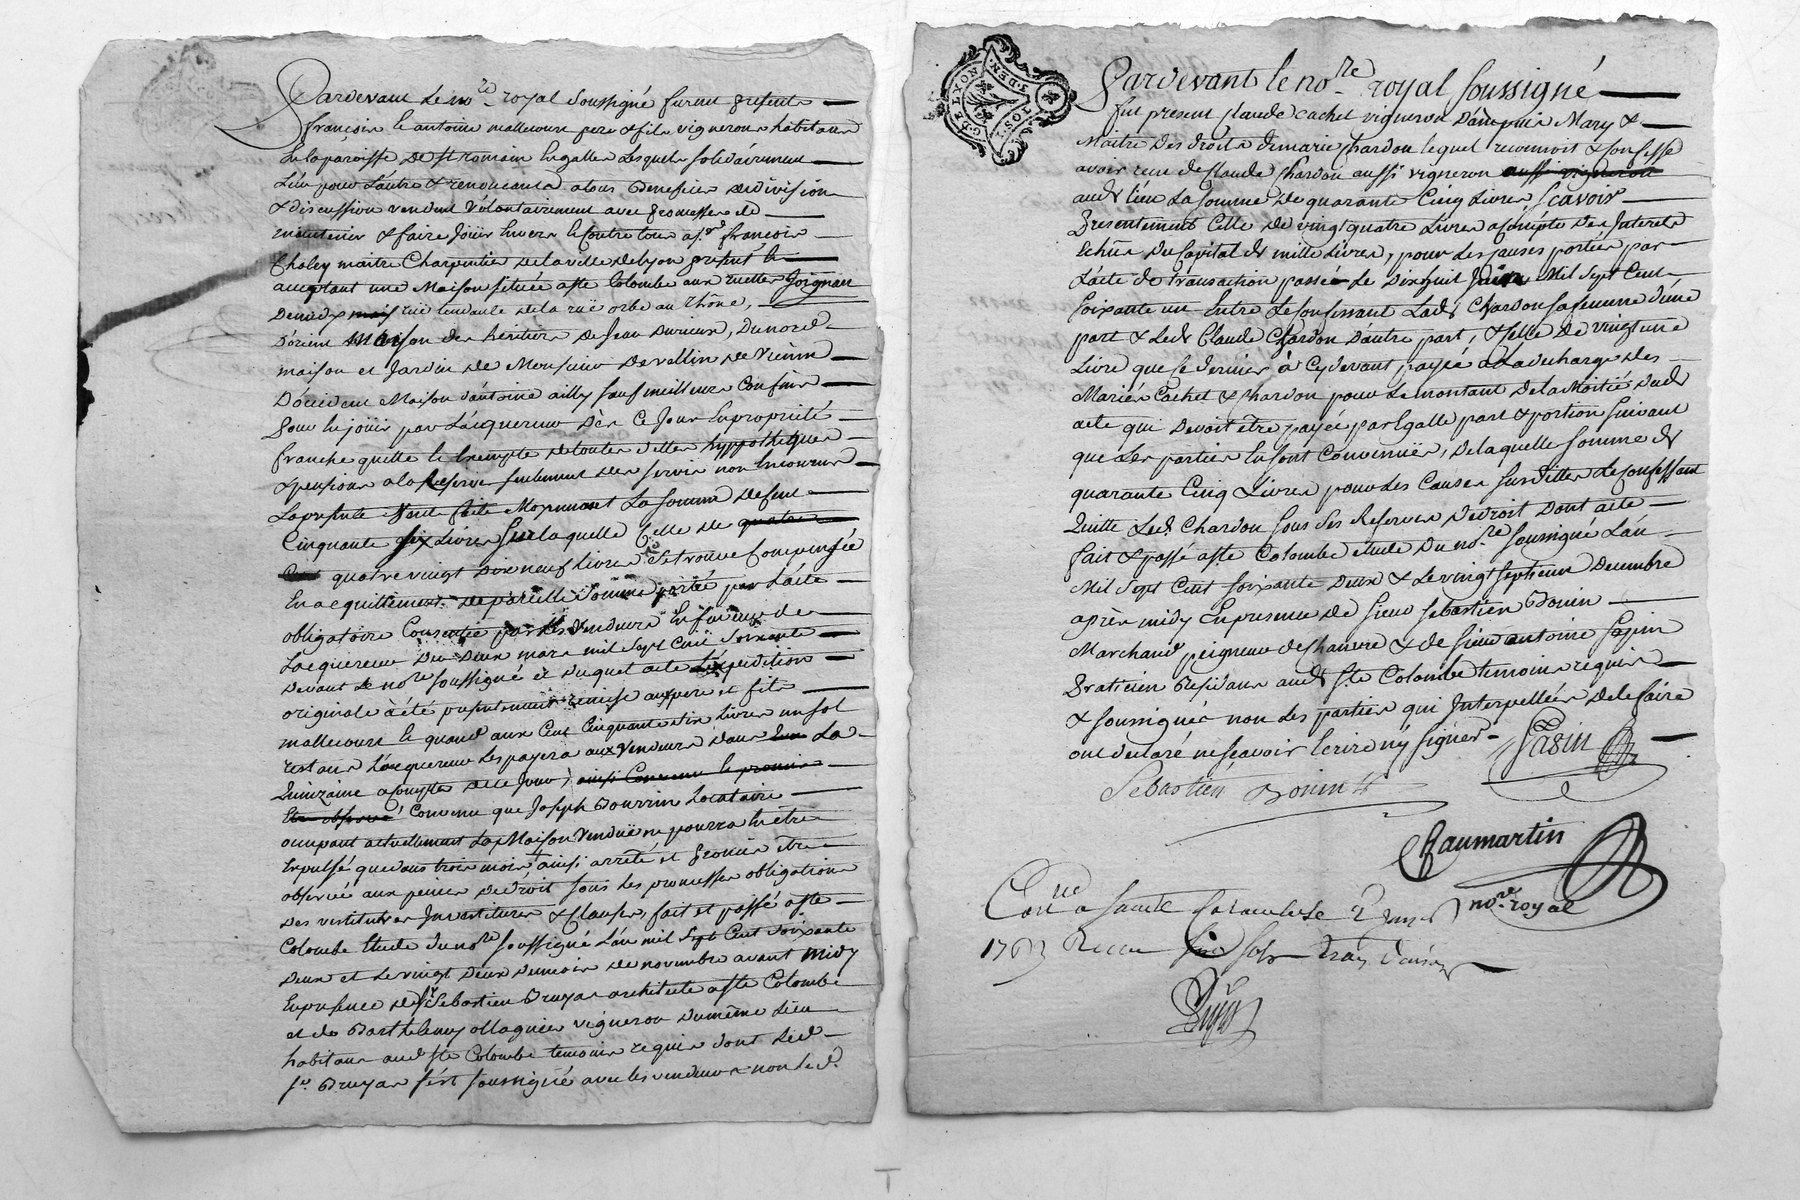 Pardevant le no.re royal soussigné furent presents
françois & antoine mallecourt pere & fils vignerons habitans
de la paroisse de st romain en galles lesquels solidairement
l'un pour l'autre & renoncants a tous benefices de division
& discussion vendent volontairement avec promesse de
maintenir & faire jouir envers & contre tous a s.r françois
Choley maitre Charpentier de la ville de lyon present &
acceptant une Maison située a ste Colombe aux ruettes Joignant
de midy rüe tendante de la rüe orbe au rhône,
d'orient maison des héritiers de Jean durieux, du nord
maison et Jardin de Monsieur de vallin de Vienne
d'occident Maison d'antoine ailly sauf meilleurs Confins
pour en jouir par l'acquereur dès Ce Jour en proprieté
franche quitte & Exempte de toutes dettes hyppotheques
& pensions a la Réserve seulement des servis non Encourus
La presente vente faite Moyennant La somme de Cent
Cinquante six Livres sur laquelle Celle de quatre
Cent quatre vingt dix neuf livres se trouve Compensée
En acquittement de pareille somme portée par l'acte
obligatoire Consentie par les vendeurs En faveur de
L'acquereur du deux mars mil sept Cent soixante
devant le no.re soussigné et duquel acte l'éxpedition
originale à été presentement remise aux pere et fils
mallecourt & quand aux Cent Cinquante six livres un sol
restans l'acquereur les payera aux Vendeurs dans La
Quinzaine a Compter de Ce Jour, ainsi Convenu & promis
Etre observé, Convenu que Joseph Bourrin Locataire
occupant actuellement La Maison Vendüe ne pourra en être
Expulsé que dans trois mois, ainsi arrêté et promis être
observé aux peines de droit sous les promesses obligations
des vestitures Investitures & Clauses, fait et passé a ste
Colombe Etude du no.re soussigné l'an mil sept Cent soixante
deux et le vingt deux du mois de novembre avant midy
En presence de s.r Sebastien Bruyas architecte a ste Colombe
et de Barthelemy ollagnier vigneron du même lieu
habitans aud. ste Colombe temoins requis dont led.
s.r Bruyas s'est soussigné avec les vendeurs non led.
Pardevant le no.re royal soussigné
fut present Claude Cachet vigneron d'ampuis Mary &
Maitre des droits de marie Chardon lequel reconnoit & Confesse
avoir reçu de Claude Chardon aussi vigneron aussi vigneron
aud. lieu La somme de quarante Cinq Livres, scavoir
presentement Celle de vingt quatre livres a Compte des Interets
échus du Capital de mille livres, pour les causes portées par
L'acte de transaction passée le dixhuit Juin Mil sept Cent
soixante un Entre le Confessant Lad. Chardon sa femme d'une
part & led. Claude Chardon d'autre part, & Celle de vingt une
Livre que Ce dernier à Cydevant payée à La decharge des
Mariés Cachet & Chardon pour le montant de la Moitié dud.
acte qui devoit être payée par Egalle part & portion suivant
que les parties En sont Convenües, de laquelle somme de
quarante Cinq Livres pour les Causes susdittes le Confessant
Quitte led. Chardon sous ses Reserves de droit dont acte
fait & passé a ste Colombe etude du no.re soussigné L'an
Mil sept Cent soixante deux & le vingt septieme decembre
après midy En presence de sieur sebastien Bonin
Marchand peigneur de Chanvre & de sieur antoine sapin
Praticien Residans aud. ste Colombe temoins requis
& soussignés non les parties qui Interpellées de le faire
ont declaré ne scavoir Ecrire ny signer
Sapin
Sebastien Bonin
Chaumartin
no.re royal
Con.lé a sainte Colombe le 2 Janv.
1763 Recu six sols trois deniers